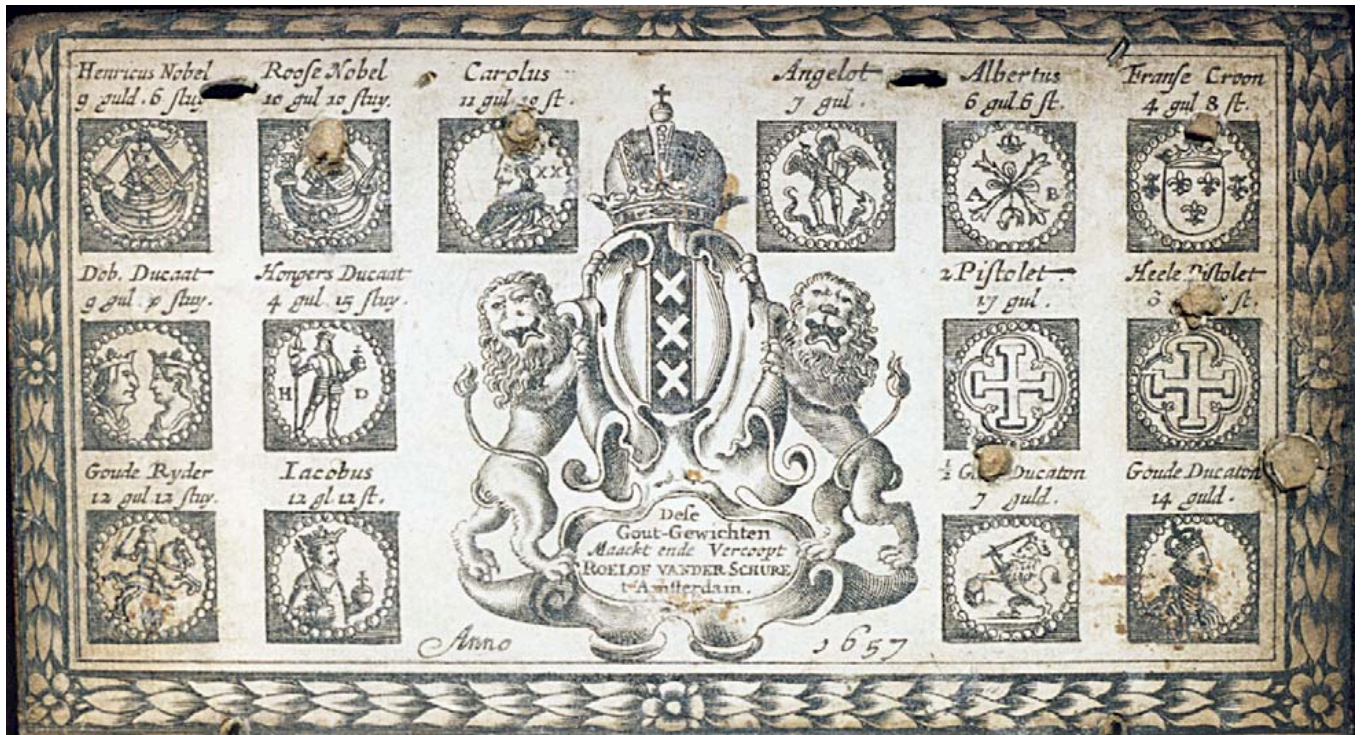 Henricus Nobel
9 guld. 6 stuy
Roose Nobel
10 gul 10 stuy.
Carolus
11 gul 10 st.
XX
Angelot
7 gul.
Albertus
6 gul. 6 st.
A B
Franse Croon
4 gul 8 st.
Dob. Ducaat
9 gul stuy.
Hongers Ducaat
4 gul 15 stuy.
H D
2. Pistolet
17 gul.
Heele Pistolet
st.
Goude Ryder
12 gul 12 stuy.
Iacobus
12 gl. 12 st.
½ Ducaton
7 guld.
Goude Ducaton
14 guld.
Dese
Gout-Gewichten
Maackt ende Vercoopt
ROELOF VANDER SCHURE
t'Amsterdam.
Anno 1657